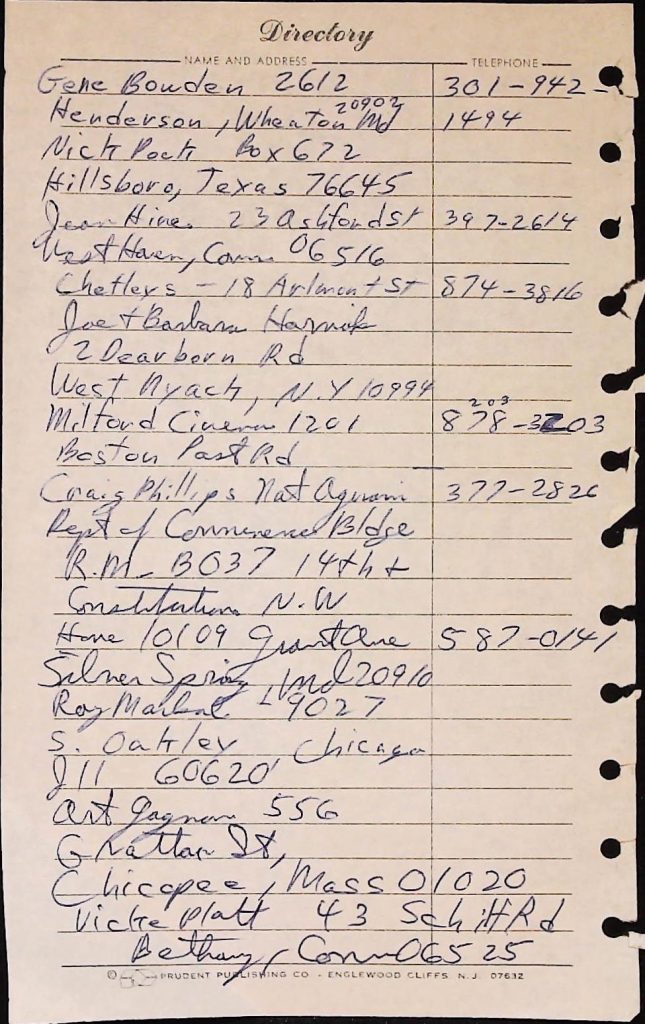 Directory
NAME AND ADDRESS TELEPHONE
Gene Bowden 2612 301-942-
Henderson, Wheaton Md 20902 1494
Nick Pock Box 672
Hillsboro, Texas 76645
Jean Hine 23 Ashford St 397-2614
West Haven, Conn. 06516
Chetleys - 18 Arlmont St 874-3816
Joe + Barbara
2 Dearborn Rd
West Nyack, N.Y 10994
Milford Cinema 1201 203 878-3203
Boston Post Rd
Craig Phillips Nat 377-2826
Dept of Commerence Bldge
R.M. B037 14th +
Constitution N.W
Home 10109 Grant Ave 587-0141
Silver Spring, Md 20910
Ray 9027
S. Oakley Chicago
Ill 60620
Art Gagnon 556
Grattan St,
Chicopee, Mass 01020
Vicke Platt 43 Schiff Rd
Bethany, Conn 06525
© PRUDENT PUBLISHING CO. - ENGLEWOOD CLIFFS, N.J. 07632